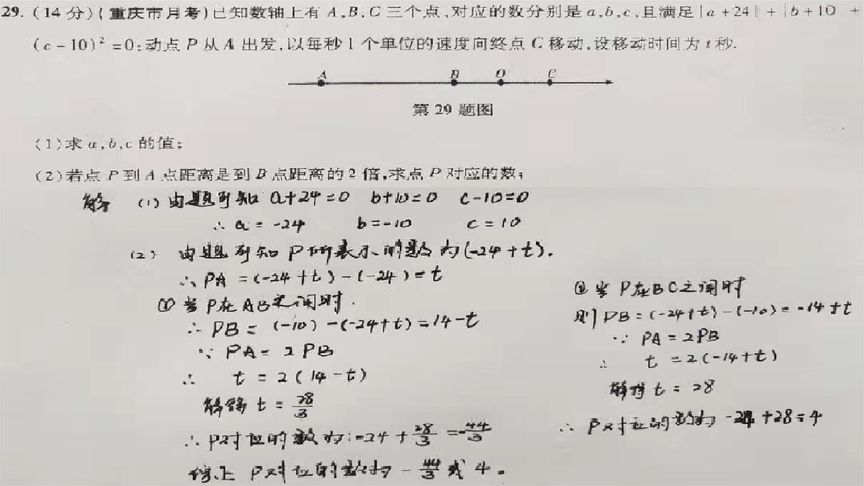 29.(14分)(重庆市月考)已知数轴上有A,B,C三个点,对应的数分别是a,b,c,且满足|a+24|+|b+10|+
(c-10)²=0;动点P从A出发,以每秒1个单位的速度向终点C移动,设移动时间为t秒.
A B O C
第29题图
(1)求a,b,c的值;
(2)若点P到A点距离是到B点距离的2倍,求点P对应的数;
解 (1) 由题可知 a+24=0 b+10=0 c-10=0
∴ a=-24 b=-10 c=10
(2) 由题可知P所表示的数为(-24+t).
∴PA=(-24+t)-(-24)=t
①当P在AB之间时.
∴PB=(-10)-(-24+t)=14-t
∵PA=2PB
∴ t=2(14-t)
解得t=28/3
∴P对应的数为:-24+28/3=-44/3
②当P在BC之间时
则PB=(-24+t)-(-10)=-14+t
∵PA=2PB
∴ t=2(-14+t)
解得t=28
∴P对应的数为-24+28=4
综上P对应的数为-44/3或4。